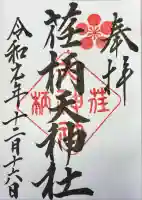 奉拝
荏柄天神社
令和七年十二月十六日
荏
柄